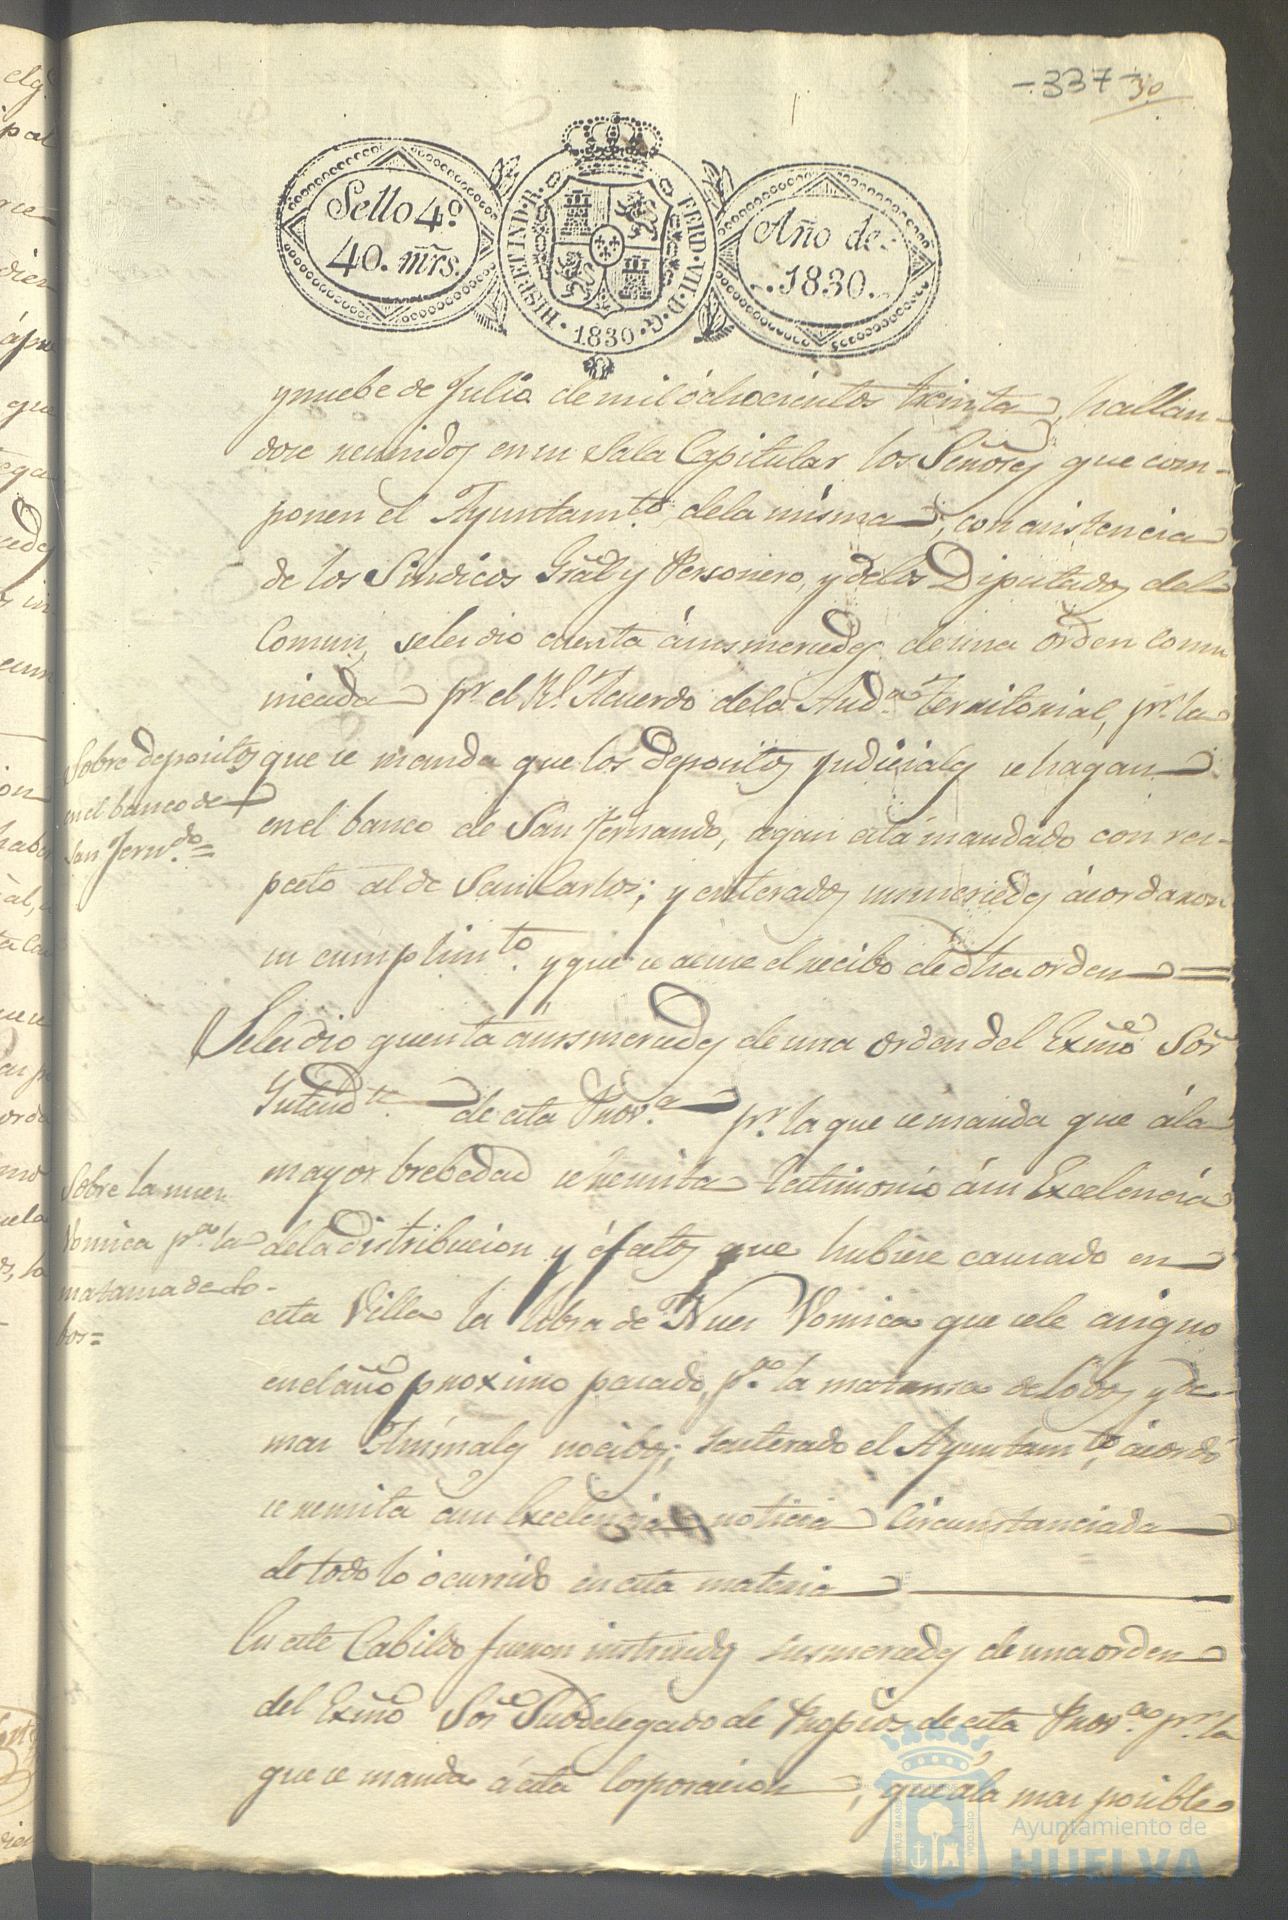 -337-
30
Sello 4.º
40. mrs.
HISP. ET IND. R.
FERD. VII. D. G.
1830
Año de
1830.
y nuebe de Julio de mil ochocientos treinta, hallan-
dose reunidos en su Sala Capitular los Señores que com-
ponen el Ayuntam.to de la misma, con asistencia
de los Sindicos Gral y Personero, y de los Diputados del
Comun, se les dio cuenta á sus mercedes de una orden comu
nicada pr. el Rl. Acuerdo de la Aud.a territorial, pr. la
que se manda que los depositos judiciales se hagan
en el banco de San Fernando, segun está mandado con res-
pecto al de San Carlos; y enterados sus mercedes acordaron
su cumplim.to y que se acuse el recibo de dha orden =
Sobre depositos
en el banco de
San Fern.do =
Se les dio quenta a sus mercedes de una orden del Exmo Sor
Intend.te de esta Prov.a pr. la que se manda que á la
mayor brebedad se remita testimonio á su Excelencia
de la distribucion y éfectos que hubiere causado en
esta Villa la libra de Nuez Vomica que se le asigno
en el año proximo pasado, p.a la matansa de Lobos y de-
mas Animales nocibos; y enterado el Ayuntam.to, acordó
se remita á su Excelencia noticia circunstanciada
de todo lo ocurrido en esta materia
Sobre la nuez
Vomica p.a la
matansa de Lo-
bos =
En este Cabildo fueron instruidos sus mercedes de una orden
del Exmo Sor Subdelegado de Propios de esta Prov.a pr. la
que se manda á esta Corporacion, que á la mas posible
Ayuntamiento de
HUELVA